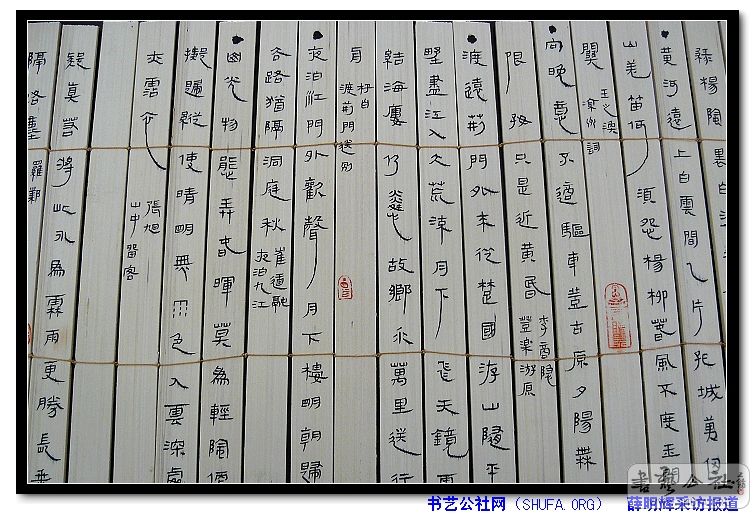 綠楊陰裏白
黃河遠上白雲間一片孤城萬仞
山羌笛何須怨楊柳春風不度玉
關 王之渙 涼州詞
向晚意不適驅車登古原夕陽無
限好只是近黃昏 李商隱 登樂游原
渡遠荊門外來從楚國游山隨平
野盡江入大荒流月下飛天鏡
結海樓仍憐故鄉水萬里送行
舟 李白 渡荊門送別
夜泊江門外歡聲月下樓明朝歸
去路猶隔洞庭秋 崔道融 夜泊九江
山光物態弄春暉莫為輕陰便
擬歸縱使晴明無雨色入雲深處
亦霑衣 張旭 山中留客
疑真 將此水為霖雨更勝長垂
隔路塵 羅鄴
書藝公社
书艺公社网（SHUFA.ORG） 薛明辉采访报道